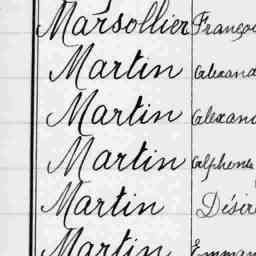 Marsollier Franço
Martin Alexand
Martin Alexand
Martin Alphonse
Martin Désir
Martin Emman